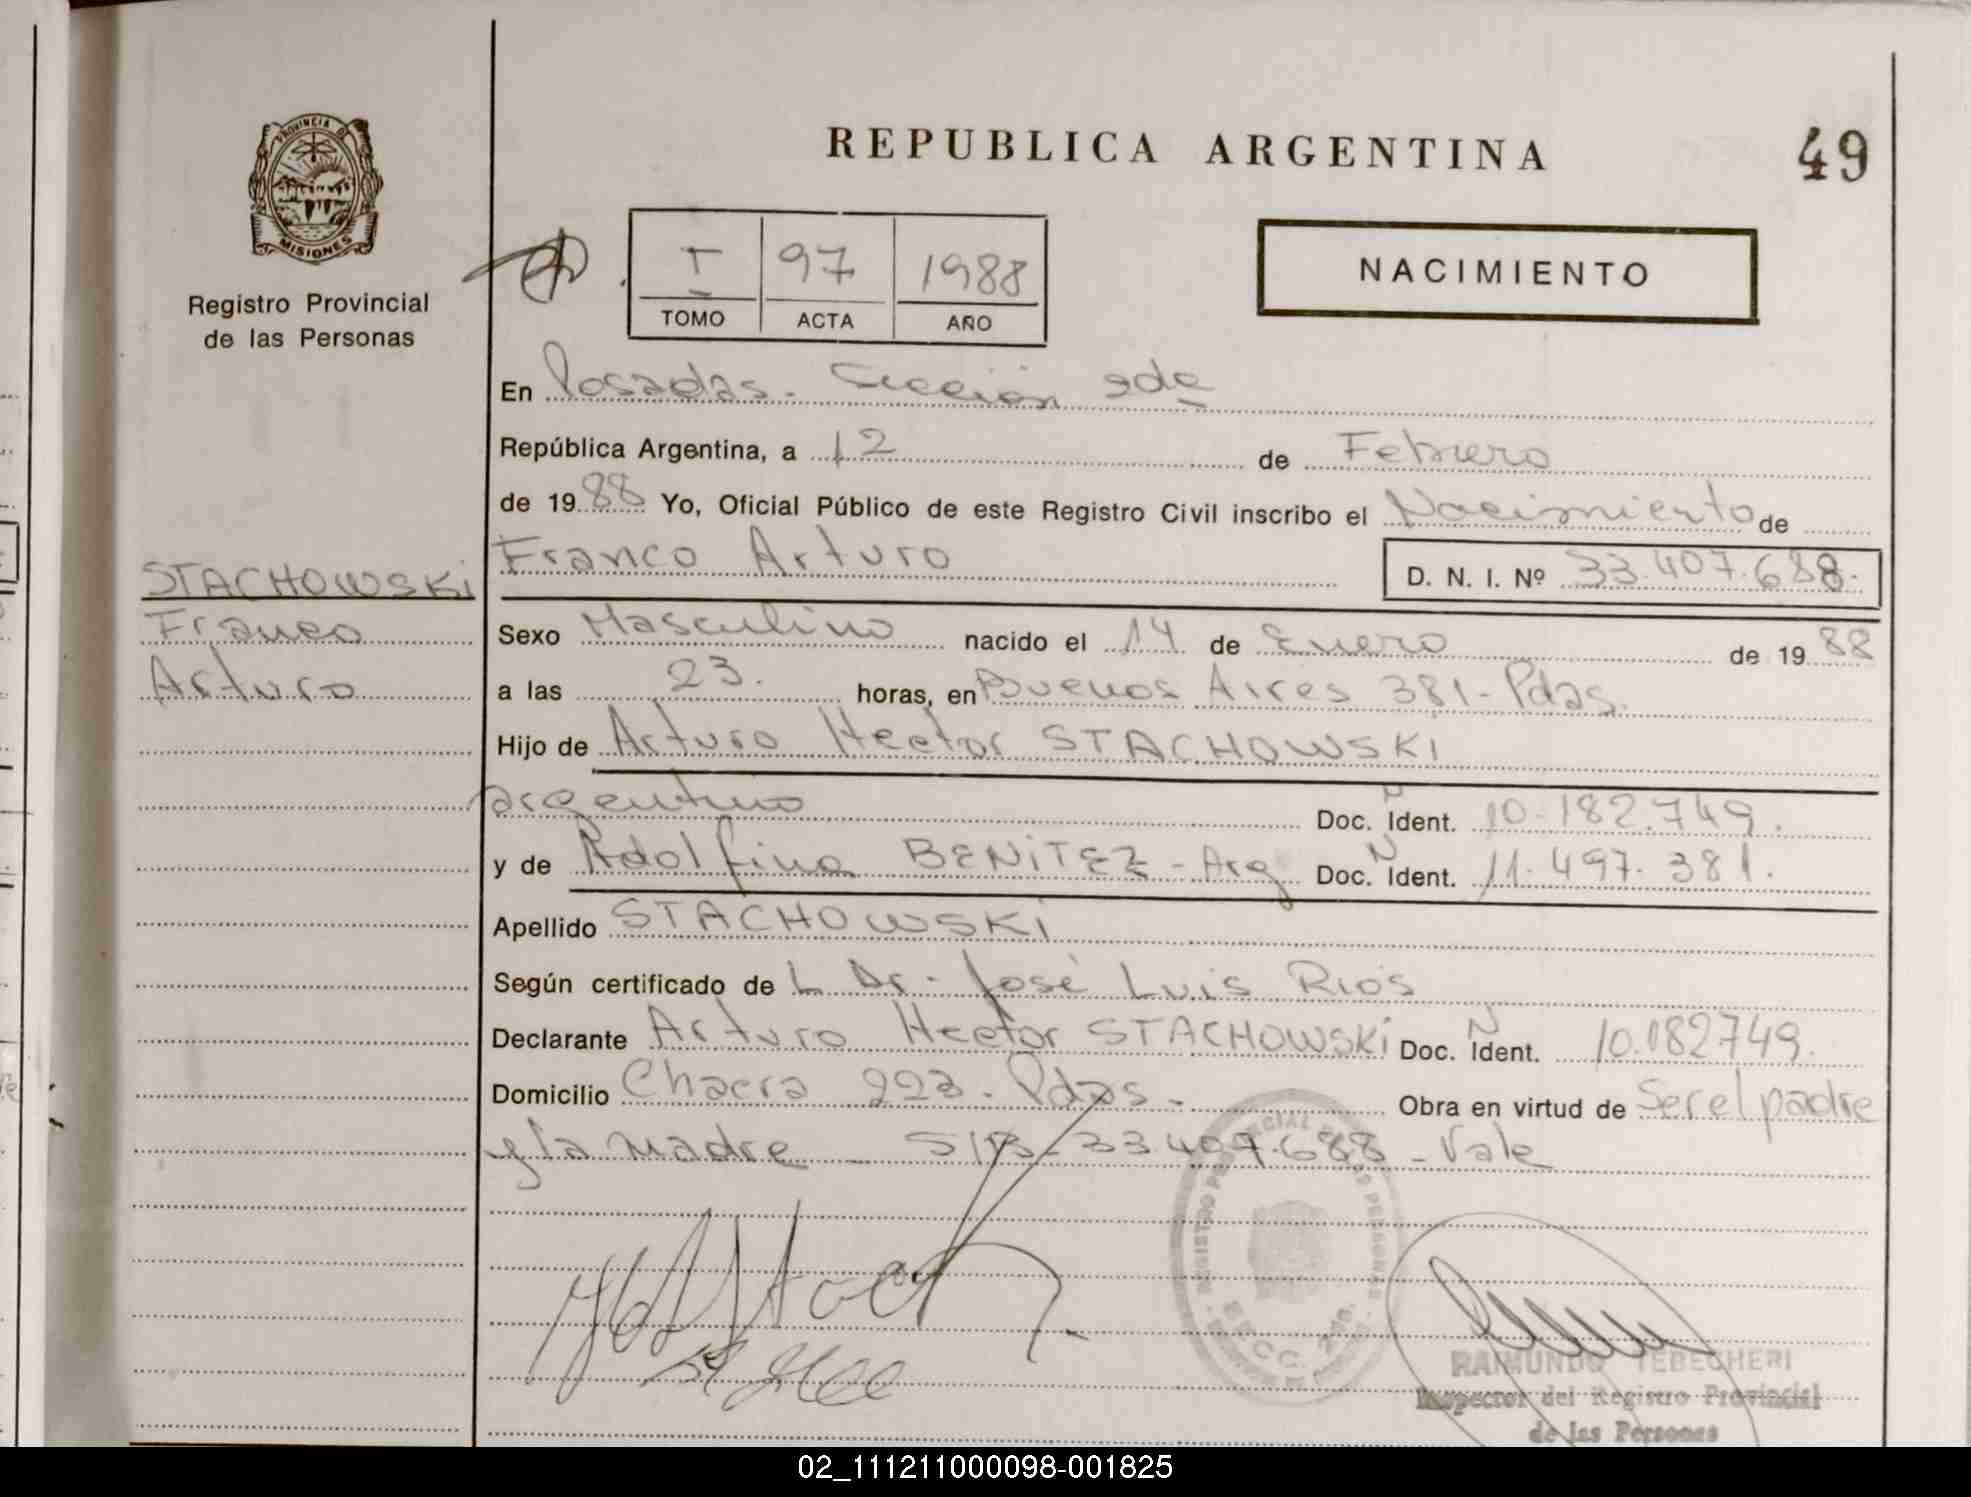 PROVINCIA DE
MISIONES
Registro Provincial
de las Personas
STACHOWSKI
Franco
Arturo
REPUBLICA ARGENTINA
49
I 97 1988
TOMO ACTA AÑO
NACIMIENTO
En Posadas. Sección 2da
República Argentina, a 12 de Febrero
de 1988 Yo, Oficial Público de este Registro Civil inscribo el Nacimiento de
Franco Arturo D. N. I. Nº 33.407.688.
Sexo Masculino nacido el 14 de Enero de 1988
a las 23. horas, en Buenos Aires 381-Pdas.
Hijo de Arturo Hector STACHOWSKI
argentino Doc. N Ident. 10.182.749.
y de Adolfina BENITEZ - Arg Doc. N Ident. 11.497.381.
Apellido STACHOWSKI
Según certificado de L Dr. José Luis Rios
Declarante Arturo Hector STACHOWSKI Doc. N Ident. 10.182749.
Domicilio Chacra 223. Pdas. Obra en virtud de Ser el padre
y la madre - S/B-33.407.688 - Vale
RAIMUNDO TEBECHERI
Inspector del Registro Provincial
de las Personas
02_111211000098-001825